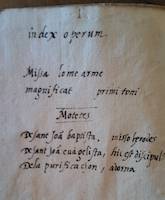 1
index operum
Missa lome arme
magnificat primi toni
Motetes
De sant Joã baptista, misso herodes
De sant Joã euãgelista, hic est discipul9
De la purificacion, adorna